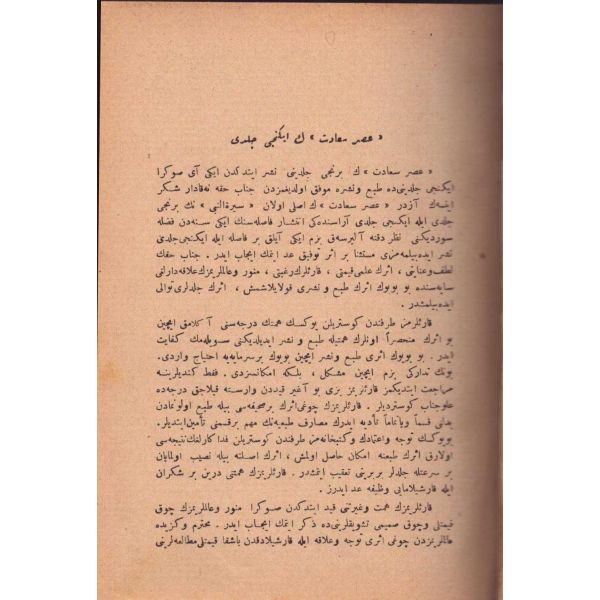 « عصر سعادت » ك ايكنجى جلدى
« عصر سعادت » ك برنجى جلدينى نشر ايتدكدن ايكى آى صوكرا
ايكنجى جلدينى ده طبع و نشره موفق اولديغمزدن جناب حقه نه قادار شكر
ايتسهك آزدر . « عصر سعادت » ك اصلى اولان « سيرة النبى » نك برنجى
جلدى ايله ايكنجى جلدى آراسنده كى انتشار فاصله سنك ايكى سنه دن فضله
سورديكنى نظر دقته آليرسهق بزم ايكى آيلق بر فاصله ايله ايكنجى جلدى
نشر ايده بيلمه مزى مستثنا بر اثر توفيق عد ايتمك ايجاب ايدر . جناب حقك
لطف و عنايتى ، اثرك علمى قيمتى ، قارئلرك رغبتى ، منور و عالملريمزك علاقه دارانى
سايه سنده بو بويوك اثرك طبع و نشرى قولايلاشمش ، اثرك جلدلرى توالى
ايده بيلمشدر .
قارئلرمز طرفندن كوستريلن يوكسك همتك درجه سنى آ كلامق ايچين
بو اثرك منحصراً اونلرك همتيله طبع و نشر ايديلديكنى سويلهمك كفايت
ايدر . بو بويوك اثرى طبع و نشر ايچين بويوك بر سرمايه يه احتياج واردى .
بونك تداركى بزم ايچين مشكل ، بلكه امكانسزدى . فقط كنديلرينه
مراجعت ايتديكمز قارئلريمز بزى بو آغير قيددن وارسته قيلاجق درجه ده
علوجناب كوسترديلر . قارئلريمزك چوغى اثرك بر صحيفه سى بيله طبع اولونمادن
بدلنى قسماً وياتماماً تأديه ايدرك مصارف طبعيه نك مهم بر قسمنى تأمين ايتديلر .
بويوكسك توجه و اعتمادك و كتبخانه مز طرفندن كوستريلن فدا كارلغك نتيجه سى
اولارق اثرك طبعنه امكان حاصل اولمش ، اثرك اصلنه بيله نصيب اولمايان
بر سرعتله جلدلر بربرينى تعقيب ايتمشدر . قارئلريمزك همتنى درين بر شكران
ايله قارشيلامايى وظيفه عد ايدرز .
قارئلريمزك همت و غيرتنى قيد ايتدكدن صوكرا منور و عالملريمزك چوق
قيمتلى و چوق صميمى تشويقلرينى ده ذكر ايتمك ايجاب ايدر . محترم و كزيده
عالملريمزدن چوغى اثرى توجه و علاقه ايله قارشيلادقدن باشقا قيمتلى مطالعه لرينى